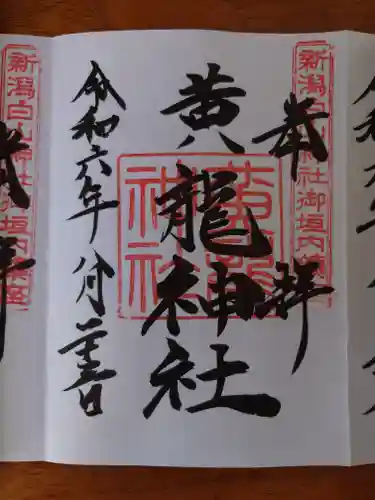 奉拝
新潟白山神社御垣内鎮座
黄龍神社
黄龍神社
令和六年八月二十三日
奉拝
新潟白山神社御垣内鎮座